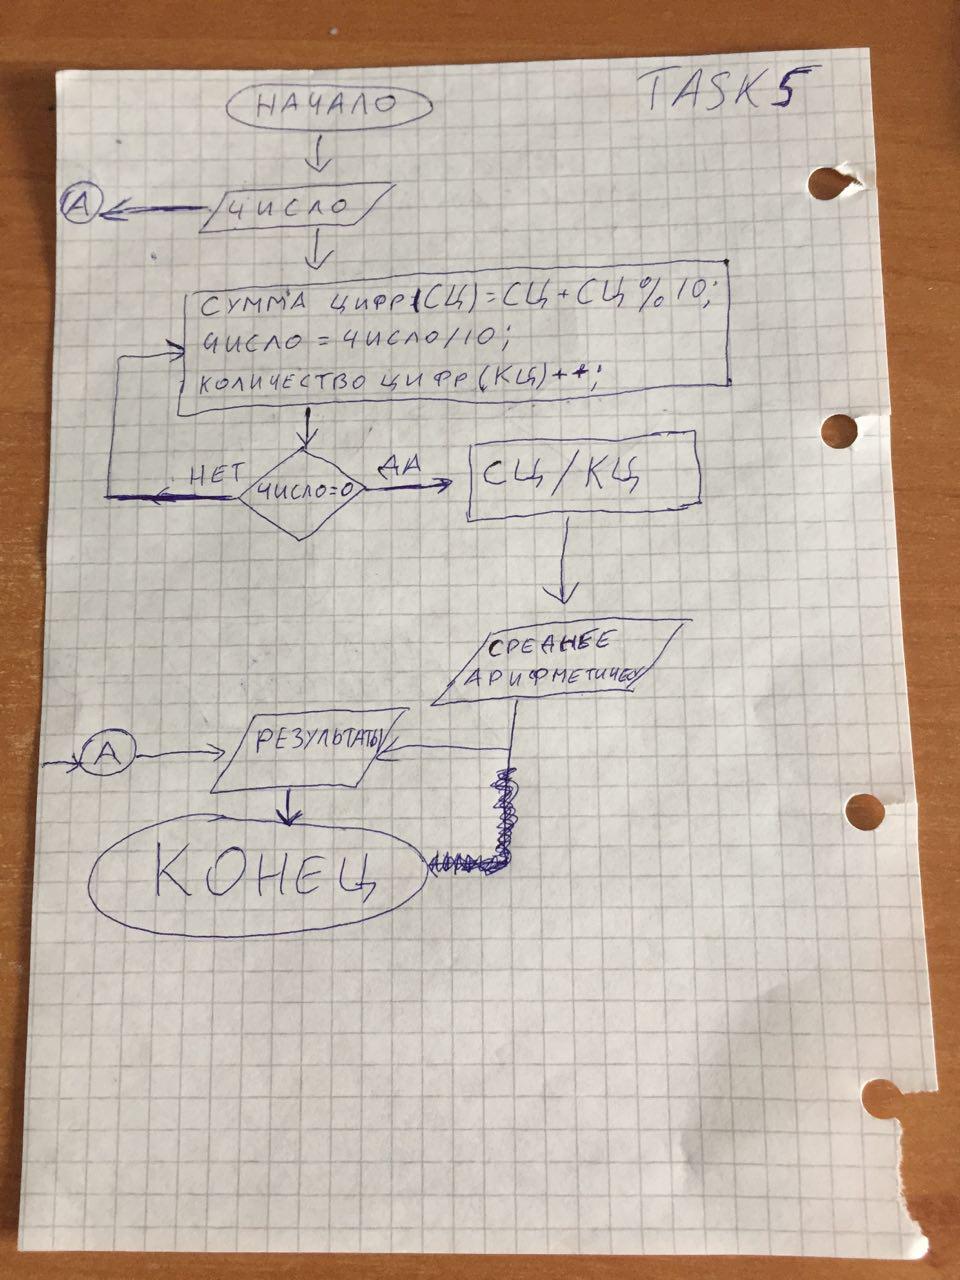 TASK 5
НАЧАЛО
А
ЧИСЛО
СУММА ЦИФР (СЦ) = СЦ + СЦ % 10;
ЧИСЛО = ЧИСЛО/10;
КОЛИЧЕСТВО ЦИФР (КЦ)++;
НЕТ
ЧИСЛО=0
ДА
СЦ / КЦ
СРЕДНЕЕ
АРИФМЕТИЧЕС
А
РЕЗУЛЬТАТЫ
КОНЕЦ